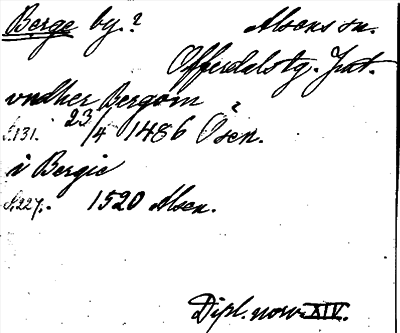 Berge by.? Alsens sn.
Offerdals tg. Jmt.
vndher Bergom
S.131. 23/4 1486 Ösen.
i Bergie
S.227. 1520 Alsen.
Dipl. norv. XIV.